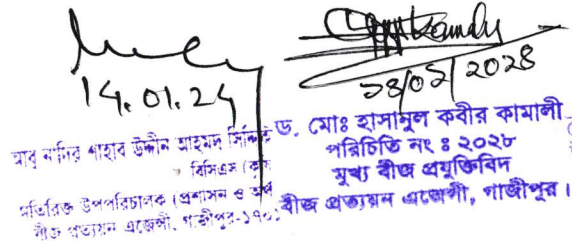 14.01.24
আবু নাদির শাহাব উদ্দীন আহমদ সিদ্দিকী
বিসিএস (কৃ
অতিরিক্ত উপপরিচালক (প্রশাসন ও অর্থ
বীজ প্রত্যয়ন এজেন্সী, গাজীপুর-১৭০১
১৪/০১/২০২৪
ড. মোঃ হাসানুল কবীর কামালী
পরিচিতি নং ঃ ২০২৮
মুখ্য বীজ প্রযুক্তিবিদ
বীজ প্রত্যয়ন এজেন্সী, গাজীপুর।